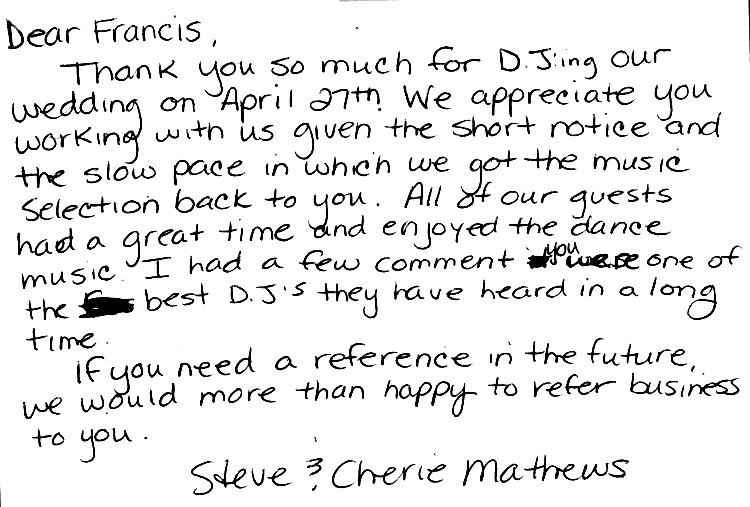 Dear Francis,
Thank you so much for D.J.'ing our
wedding on April 27th. We appreciate you
working with us given the short notice and
the slow pace in which we got the music
selection back to you. All of our guests
had a great time and enjoyed the dance
music. I had a few comment you were one of
the best D.J.'s they have heard in a long
time.
If you need a reference in the future,
we would more than happy to refer business
to you.
Steve & Cherie Mathews